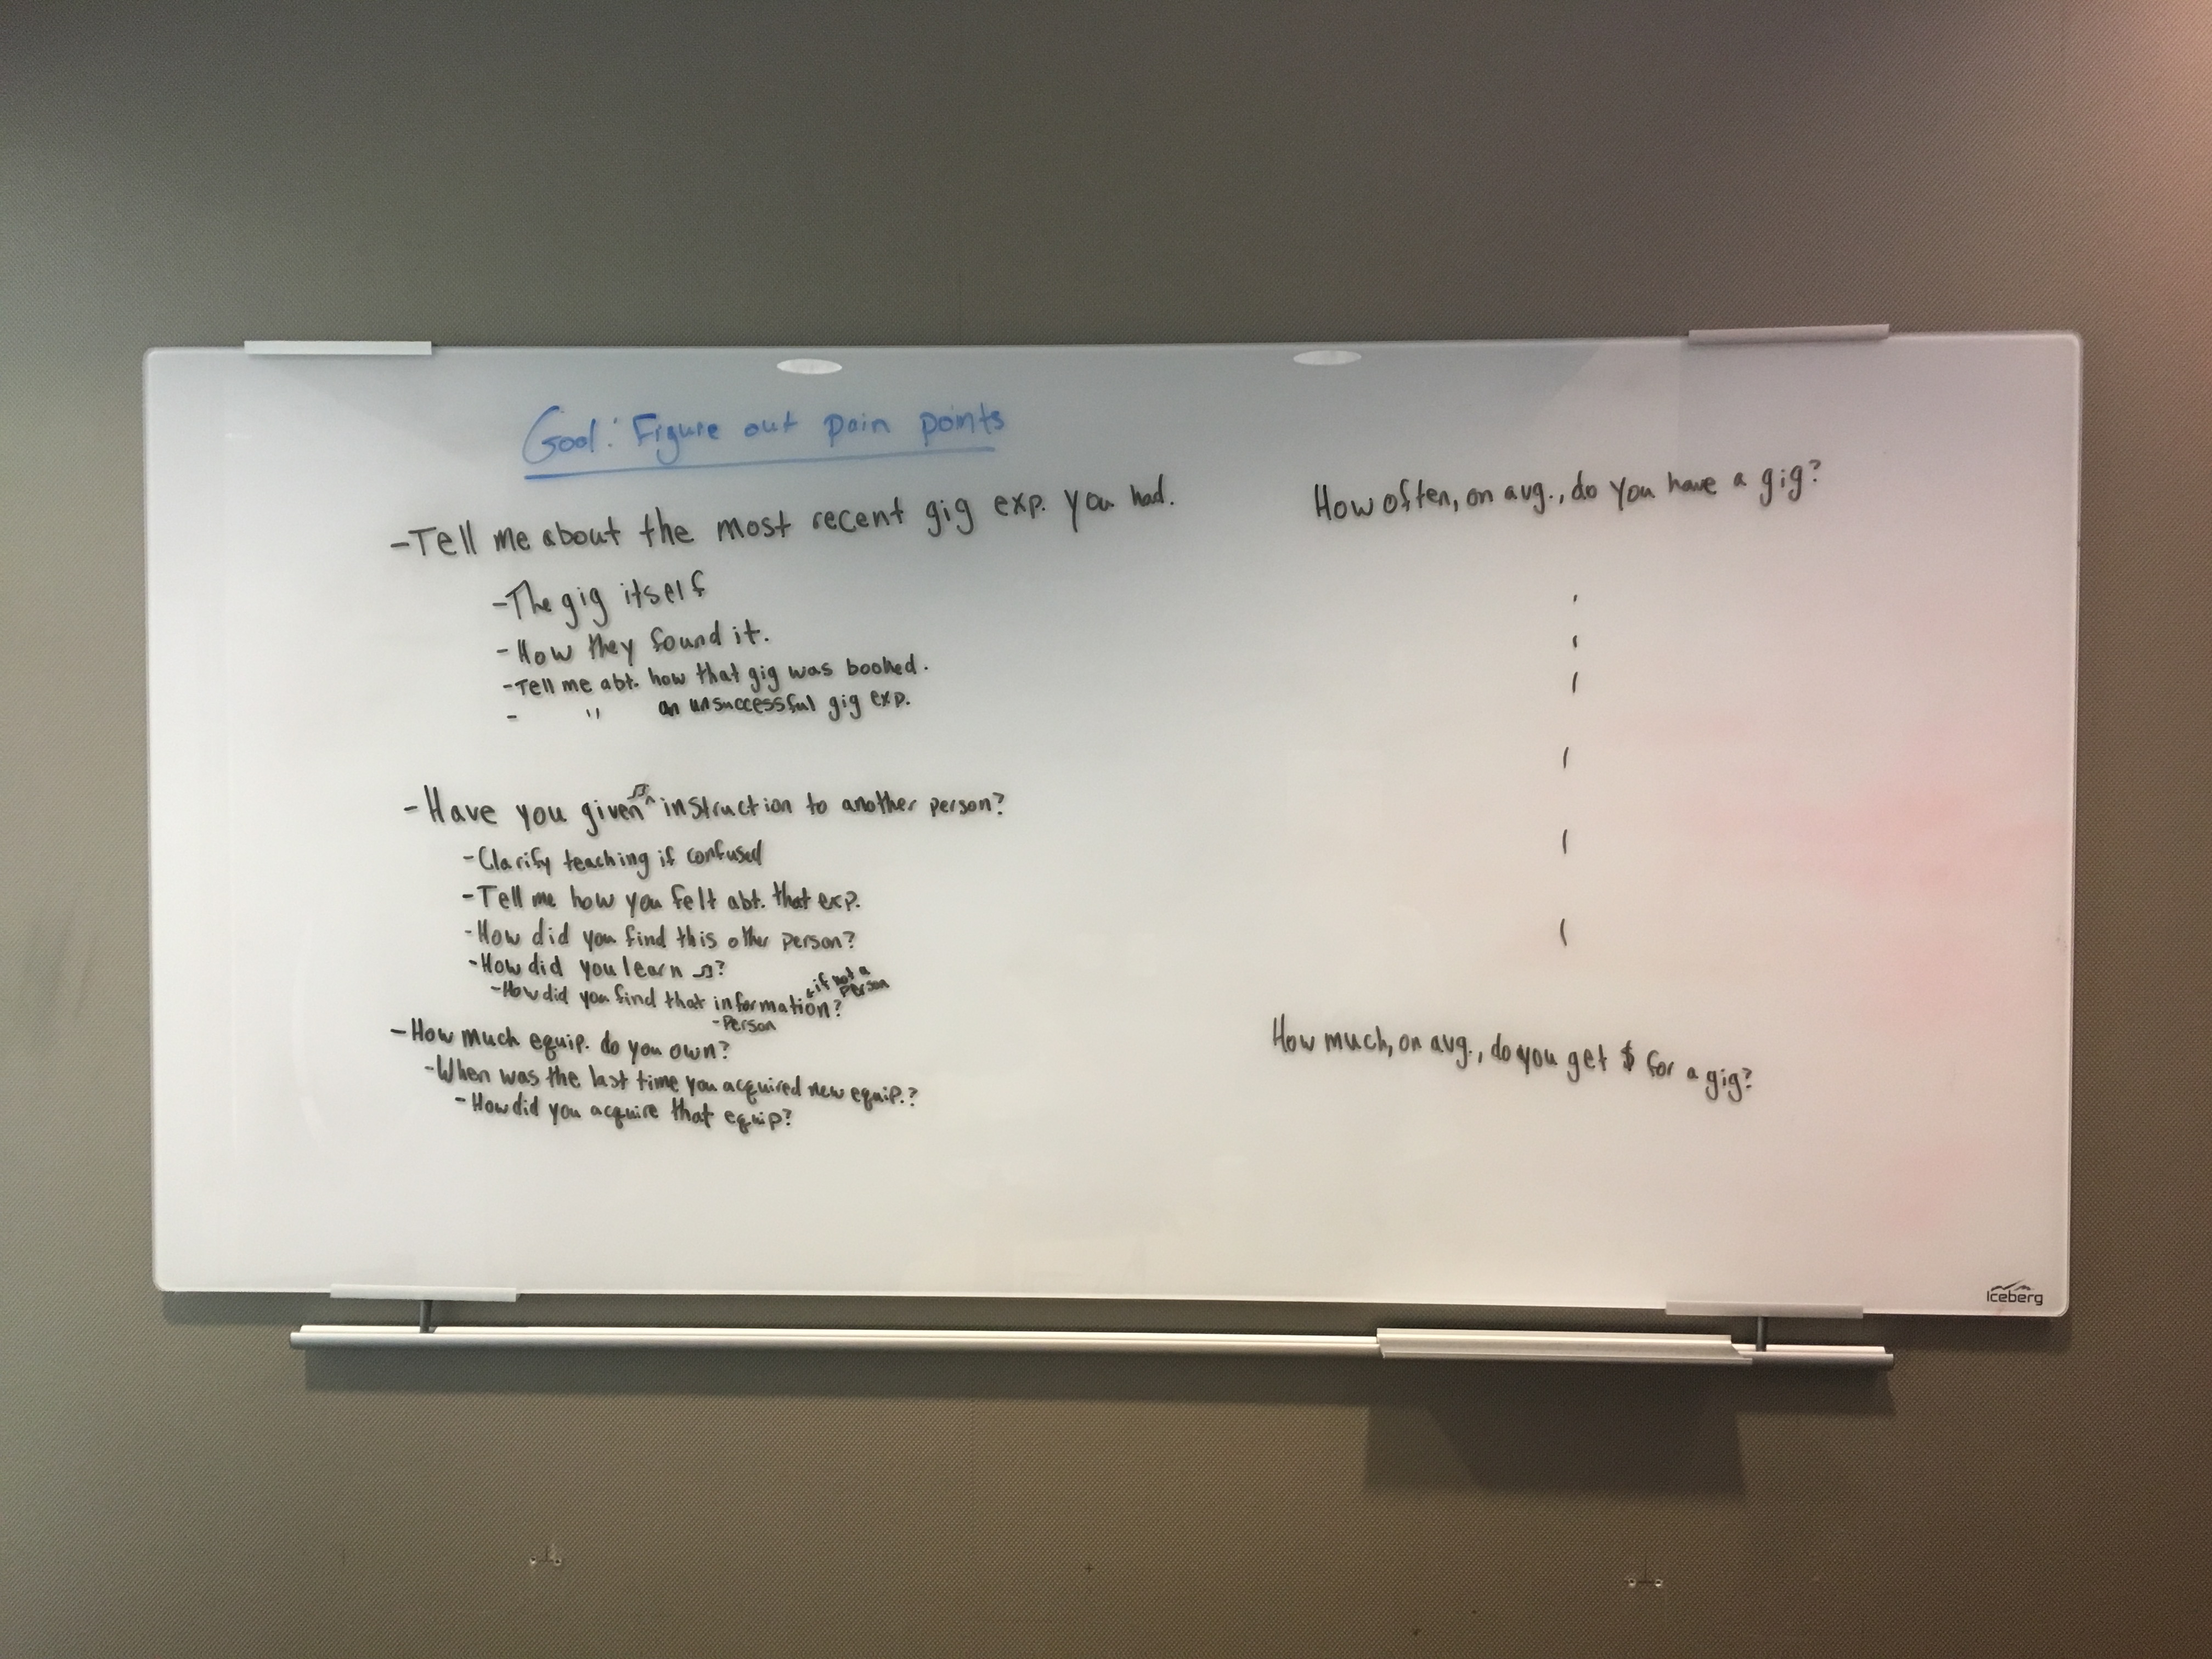 Goal: Figure out pain points
-Tell me about the most recent gig exp. you had.
-The gig itself
-How they found it.
-Tell me abt. how that gig was booked.
- " an unsuccessful gig exp.
-Have you given ♫ instruction to another person?
-Clarify teaching if confused
-Tell me how you felt abt. that exp.
-How did you find this other person?
-How did you learn ♫?
-How did you find that information? if not a person
-Person
-How much equip. do you own?
-When was the last time you acquired new equip.?
-How did you acquire that equip?
How often, on avg., do you have a gig?
How much, on avg., do you get $ for a gig?
Iceberg